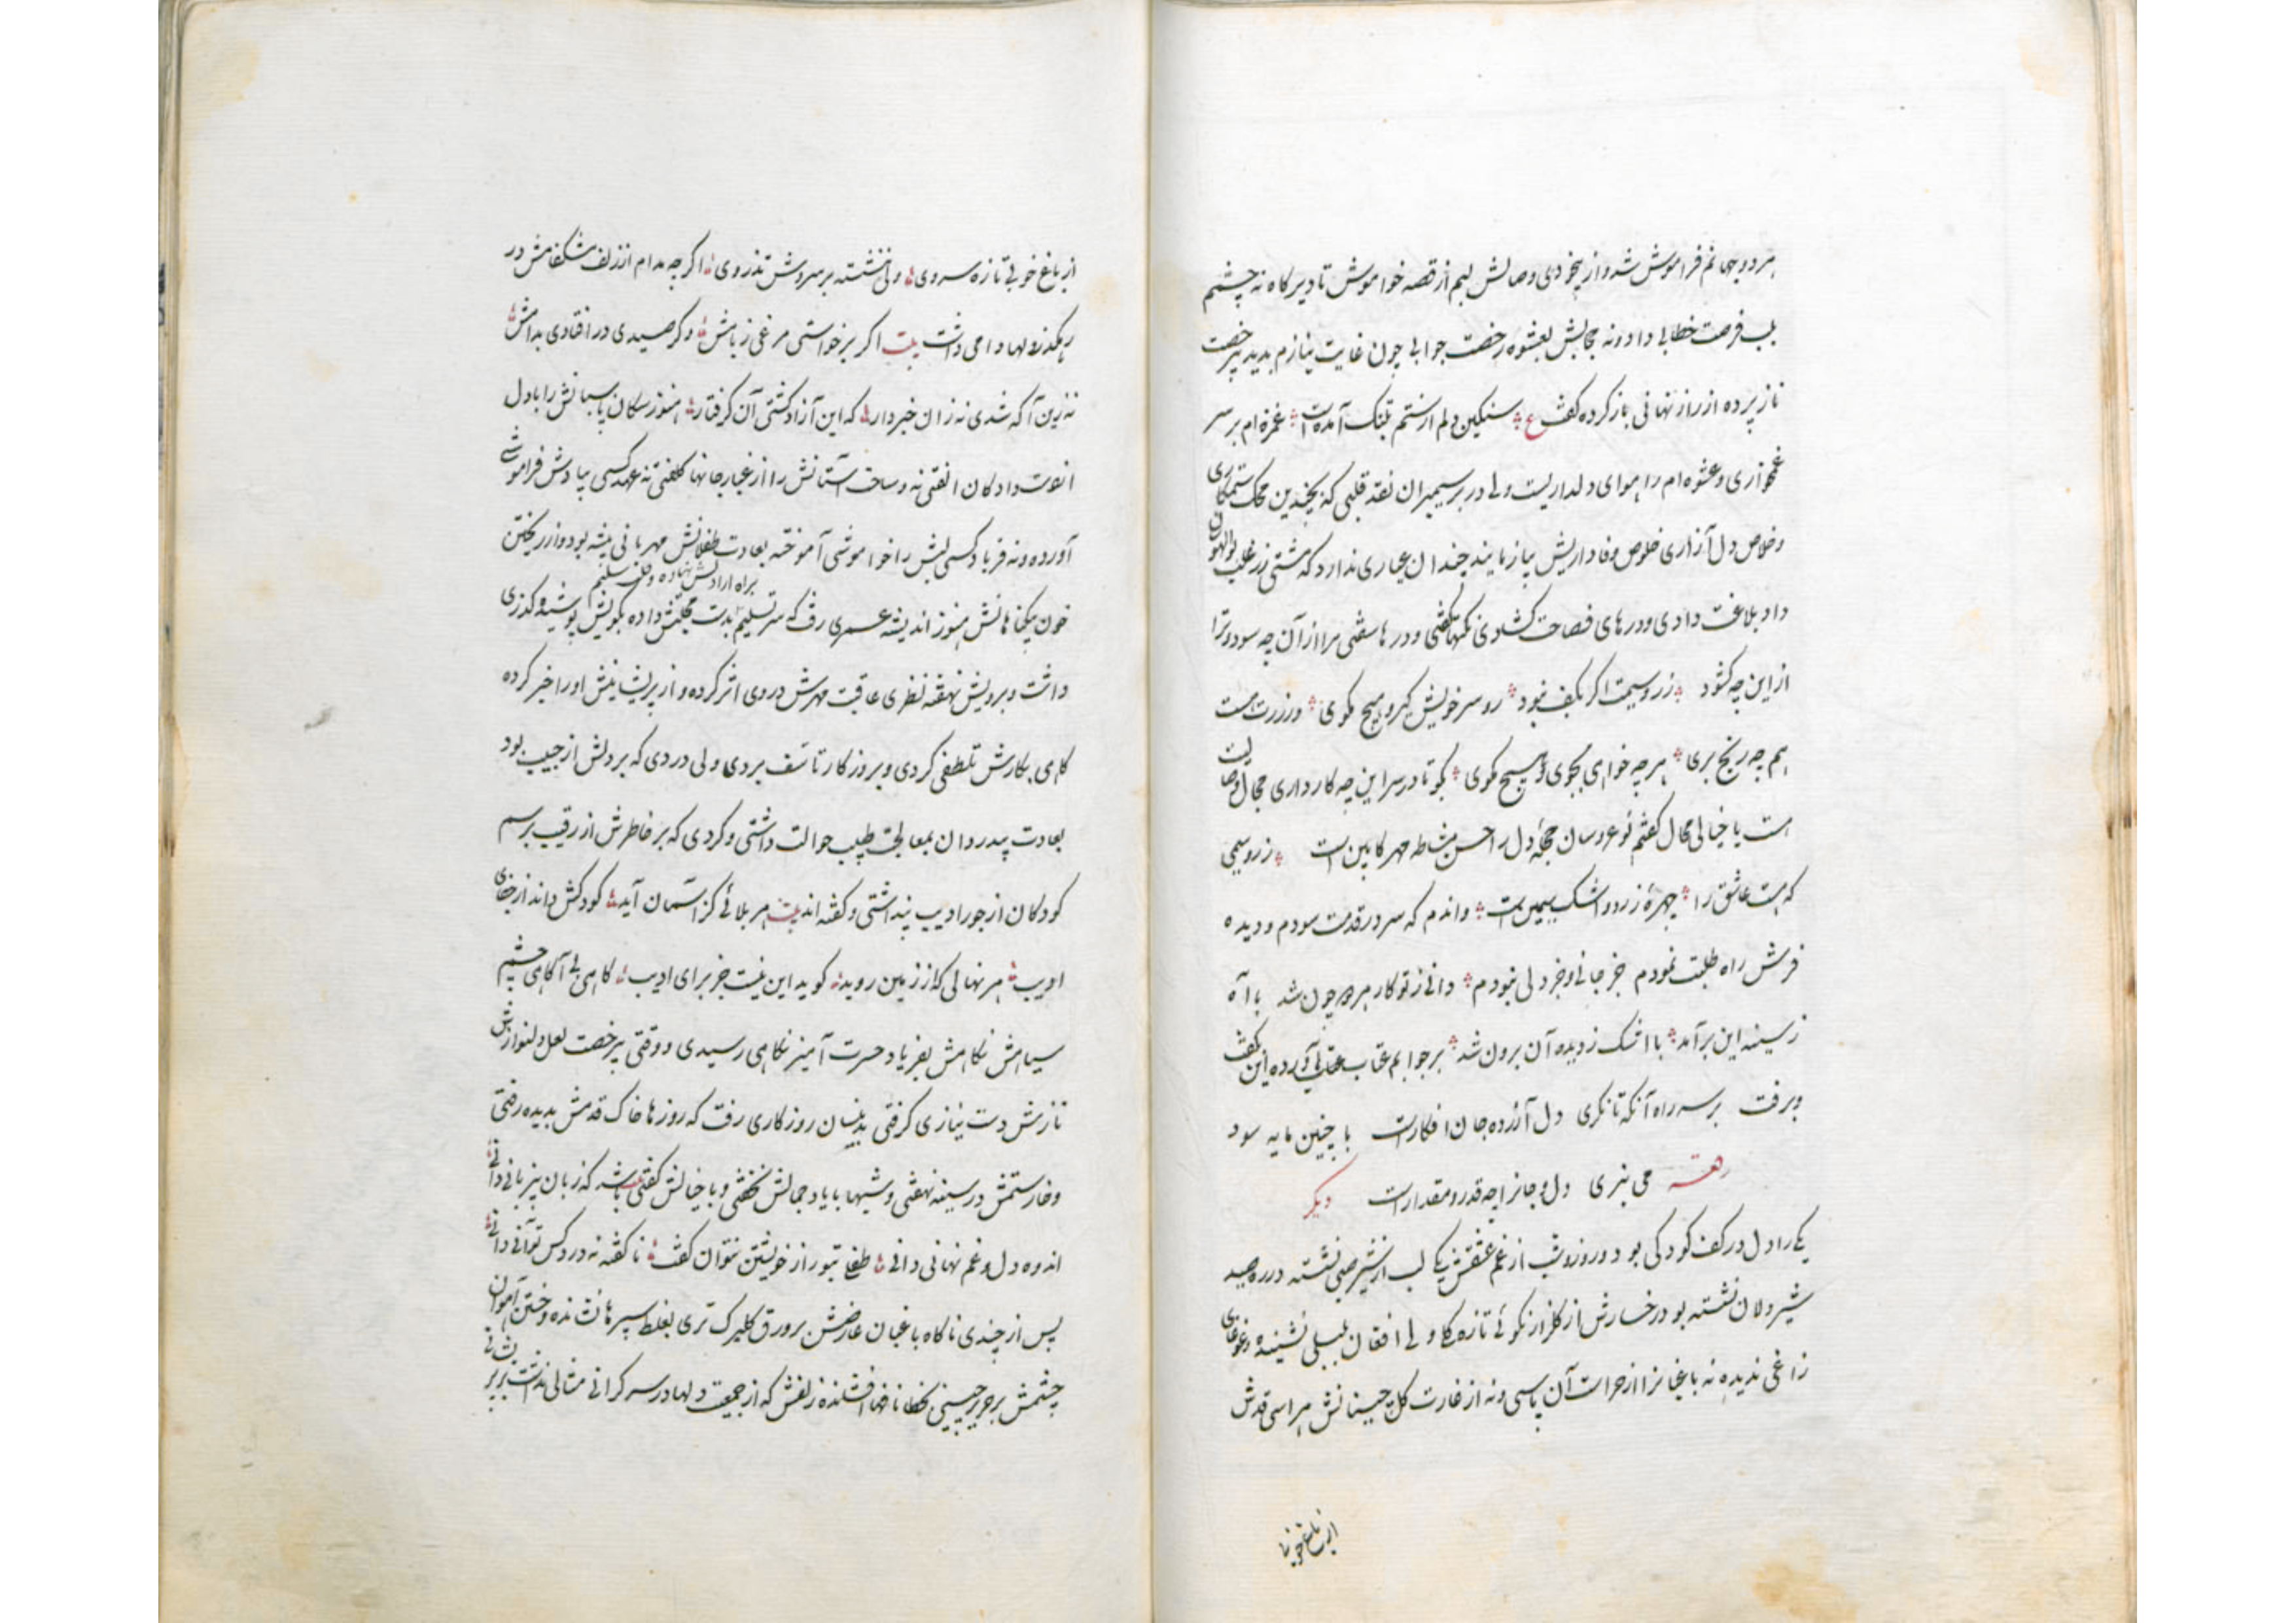 هر دو جهانم فراموش شد و از بیخودی وصالش لبم از قصه خواموش تا دیرگاه نه چشمم
بلب فرصت خطابی داد و نه مجالش بعشوه رخصت جوابی چون غایت نیازم بدید برخصت
ناز پرده از راز نهانی باز کرده گفت ع سنگین دلم از ستم بتنگ آمده است غمزه ام بر سر
غمخواری و عشوه ام را هوای دلداریست ولی در بر سیمبران نقد قلبی که بچندین محک ستمکاری
و خلاص دل آزاری خلوص وفاداریش بیازمایند چندان عیاری ندارد که مشتی زر غلب بوالهوس
داد بلاغت دادی و درهای فصاحت گشادی نکتها گفتی و درها سفتی مرا از آن چه سود و ترا
از این چه گشود زر و سیمت اگر بکف نبود رو سر خویش گیر و هیچ مگوی ور زرت هست
هم چه رنج بری هر چه خواهی بجوی و هیچ مگوی بگو تا در سر این چه کار داری مجال وصالیت
است یا خیالی محال گفتم نوعروسان حجلهٔ دل را حسن مشاطه مهر کابین است زر و سیمی
که هست عاشق را چهرهٔ زرد و اشک سیمین است واندم که سر در قدمت سودم و دیده
فرش راه طلبت نمودم جز جانی و جز دلی نبودم دانی ز تو کار هر دو چون شد با آه
ز سینه این برآمد با اشک ز دیده آن برون شد بر جوابم عتاب آورده این گفت
و برفت بر سر راه آنکه تا نگری دل آزرده جان افکار است با چنین مایه سود
می بری دل و جانرا چه قدر و مقدار است دیگر
یکی را دل در کف کودکی بود و روز و شب از غم عشقش یک لب از شیر صبی نشسته در ره صید
شیر دلان نشسته بود رخسارش از گلزار نکوئی تازه گلی ولی افغان بلبلی نشنیده و غوغای
زاغی ندیده نه باغبانرا از حراست آن پاسی و نه از غارت گلچینانش هراسی قدش
از باغ خوبی تا
از باغ خوبی تازه سروی ولی ننشسته بر سروش تذروی اگر چه مدام از زلف مشکفامش در
رهگذر دلها دامی داشت بیت اگر برخواستی مرغی ز بامش وگر صیدی در افتادی بدامش
نه زین آگه شدی نه زان خبردار که این آزاد گشتی آن گرفتار هنوز سگان پاسبانش را با دل
دادگان الفتی نه و ساحت آستانش را از غبار جانها کلفتی نه عهد کسی بیادش فراموشی
آورده و نه فریاد کسی لبش را خواموشی آموخته بعادت طفلانش مهربانی پیشه بود و از ریختن
براه ارادتش نهاده و دل
خون بیگناهانش هنوز اندیشه عمری رفت که سر تسلیم بدست محبتش داده بکویش پوشیده گذری
داشت و برویش نهفته نظری عاقبت مهرش در وی اثر کرده و از پریشانیش او را خبر کرده
گاهی بکارش تلطفی کردی و بروزگار تاسف بردی ولی دردی که بر دلش از حبیب بود
بعادت بیدردان بمعالجت طبیب حوالت داشتی و گردی که بر خاطرش از رقیب برسم
کودکان از جور ادیب پنداشتی و گفته اند بیت هر بلائی کز آسمان آید کودکش داند از جفای
ادیب هر نهالی که از زمین روید گوید این نیست جز برای ادیب گاهی بی آگاهی چشم
سیاهش نگاهش بفریاد حسرت آمیز نگاهی رسیدی و وقتی برخصت لعل دلنوازش
نازش دست نیازی گرفتی بدینسان روزگاری رفت که روزها خاک قدمش بدیده رفتی
و خار ستمش در سینه نهفتی و شبها با یاد جمالش نخفتی و با خیالش گفتی باشد که زبان بیزبانی دانی
اندوه دل و غم نهانی دانی طفلی تو و راز خویشتن نتوان گفت ناگفته نه درد کس توانی دانی
پس از چندی ناگاه باغبان عارضش بر ورق گلبرگ تری بغلط سپرها نشانده و ختن آهوان
چشمش بر حریر چینی بخطا نافها افشانده زلفش که از جمعیت دلها در سر گرانی مثالی نداشت